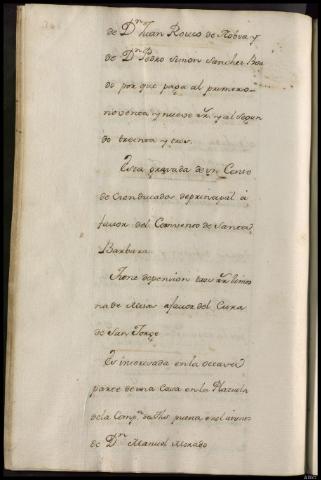 de D.n Juan Rouco de Nobva y
de D.n Pedro Simon Sanchez Boa
do por que paga al primero
noventa y nueve rr. y al segun
do treinta y tres.
Esta gravada de un Censo
de Cien ducados de principal á
favor del Convento de Santa
Barbara.
Tiene de pension tres rr. limos
na de Misa a favor del Cura
de San Jorge
Es interesada en la octava
parte de una Casa en la Plazuela
de la Comp.a de Jhs puerta
de D.n Manuel Morado